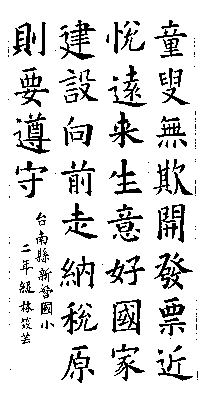 童叟無欺開發票近
悅遠来生意好國家
建設向前走納稅原
則要遵守
台南縣新營國小
二年級林筱芸